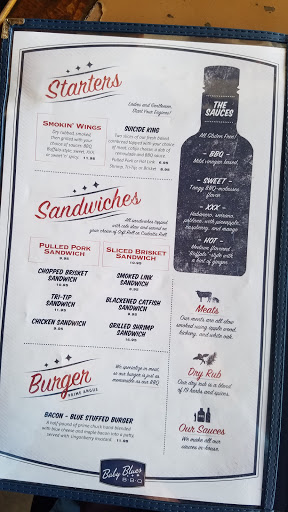 Starters
Ladies and Gentlemen,
Start Your Engines!
SMOKIN' WINGS
Dry rubbed, smoked
then grilled with your
choice of sauce: BBQ
Buffalo-style, sweet, XXX
or sweet 'n' spicy. 11.95
SUICIDE KING
Two slices of our fresh baked
cornbread topped with your choice
of meat, crispy tobacco onions, a
remoulade and BBQ sauce.
Pulled Pork or Hot Link 8.95
Shrimp, Tri-Tip, or Brisket 9.95
Sandwiches
All sandwiches topped
with cole slaw and served on
your choice of Soft Roll or Ciabatta Roll
PULLED PORK
SANDWICH
9.95
SLICED BRISKET
SANDWICH
10.95
CHOPPED BRISKET
SANDWICH
10.95
SMOKED LINK
SANDWICH
9.95
TRI-TIP
SANDWICH
11.95
BLACKENED CATFISH
SANDWICH
CHICKEN SANDWICH
9.95
GRILLED SHRIMP
SANDWICH
Burger
PRIME ANGUS
We specialize in meat
so our burger is just as
memorable as our BBQ
BACON - BLUE STUFFED BURGER
A half pound of prime chuck hand blended
with blue cheese and maple bacon into a patty
served with lingonberry mustard.
THE
SAUCES
All Gluten Free!
- BBQ -
Mild vinegar based
- SWEET -
Tangy BBQ-molasses
flavor
- XXX -
Habanero, serrano,
poblano, with pineapple,
raspberry, and mango
- HOT -
Medium flavored
"Buffalo" style with
a hint of ginger
Meats
Our meats are all slow
smoked using apple wood,
hickory, and white oak.
Dry Rub
Our dry rub is a blend
of 19 herbs and spices.
Our Sauces
We make all our
sauces in-house.
Baby Blues
BBQ